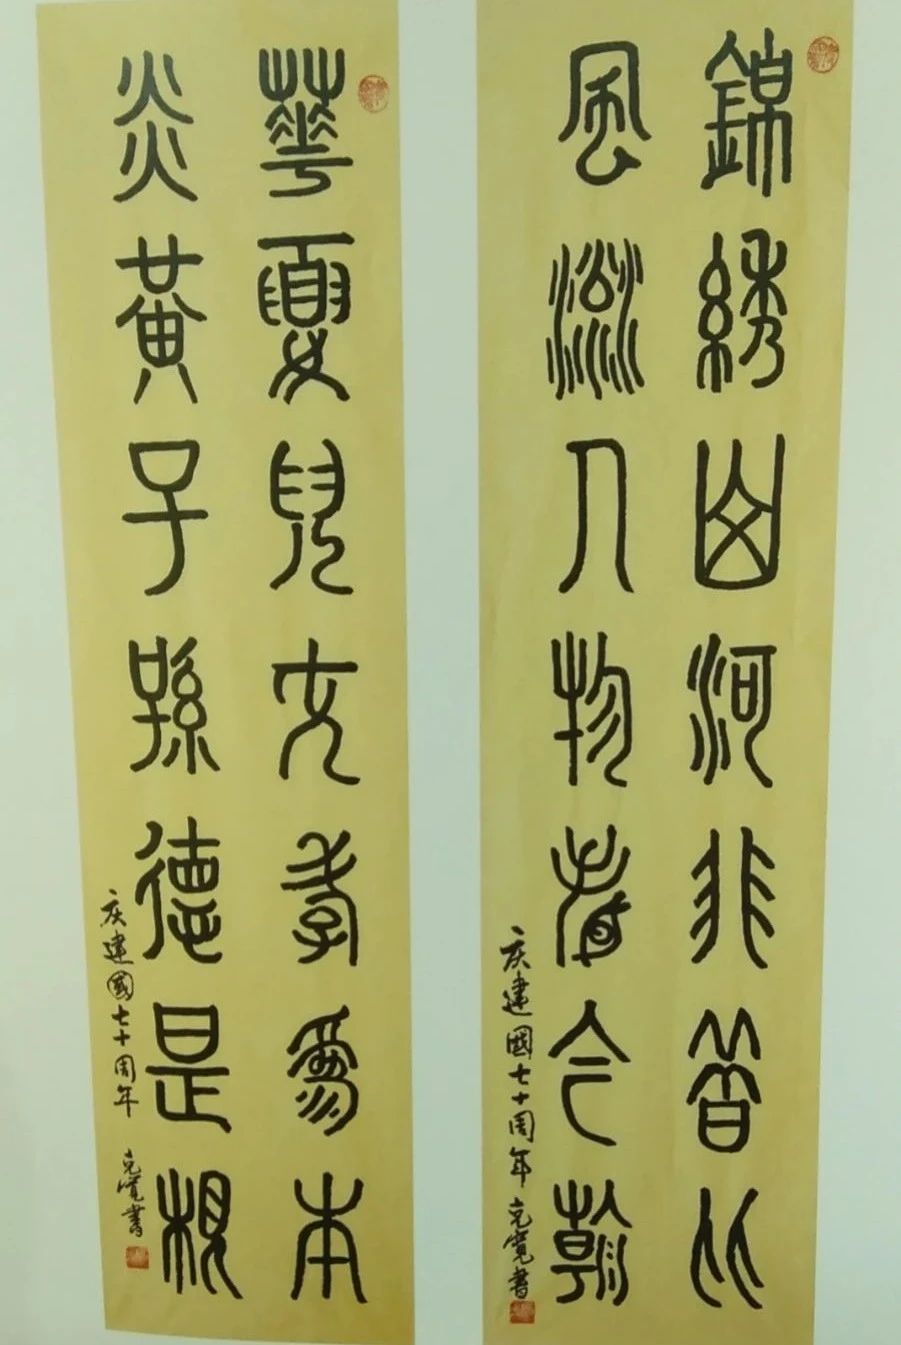 錦綉山河非昔比
風流人物看今朝
庆建國七十周年 克寬書
華夏兒女孝爲本
炎黃子孫德是根
庆建國七十周年 克寬書